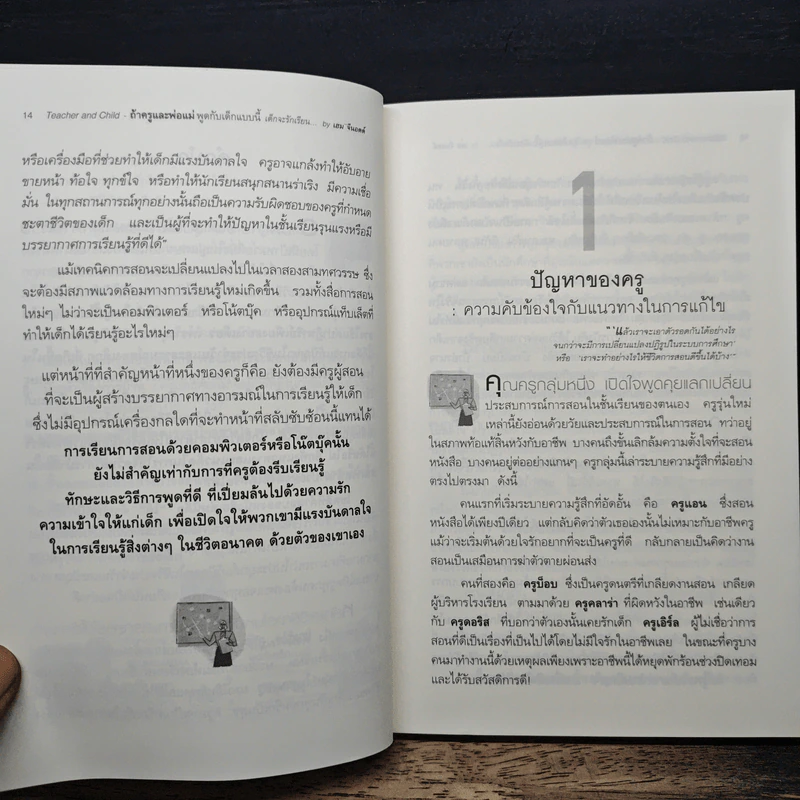 14 Teacher and Child - ถ้าครูและพ่อแม่ พูดกับเด็กแบบนี้ เด็กจะรักเรียน... by เฮม จีนอตต์
หรือเครื่องมือที่ช่วยทำให้เด็กมีแรงบันดาลใจ ครูอาจแกล้งทำให้อับอาย
ขายหน้า ท้อใจ ทุกข์ใจ หรือทำให้นักเรียนสนุกสนานร่าเริง มีความเชื่อ
มั่น ในทุกสถานการณ์ทุกอย่างนั้นถือเป็นความรับผิดชอบของครูที่กำหนด
ชะตาชีวิตของเด็ก และเป็นผู้ที่จะทำให้ปัญหาในชั้นเรียนรุนแรงหรือมี
บรรยากาศการเรียนรู้ที่ดีได้"
แม้เทคนิคการสอนจะเปลี่ยนแปลงไปในเวลาสองสามทศวรรษ ซึ่ง
จะต้องมีสภาพแวดล้อมทางการเรียนรู้ใหม่เกิดขึ้น รวมทั้งสื่อการสอน
ใหม่ๆ ไม่ว่าจะเป็นคอมพิวเตอร์ หรือโน้ตบุ๊ค หรืออุปกรณ์แท็บเล็ตที่
ทำให้เด็กได้เรียนรู้อะไรใหม่ๆ
แต่หน้าที่ที่สำคัญหน้าที่หนึ่งของครูก็คือ ยังต้องมีครูผู้สอน
ที่จะเป็นผู้สร้างบรรยากาศทางอารมณ์ในการเรียนรู้ให้เด็ก
ซึ่งไม่มีอุปกรณ์เครื่องกลใดที่จะทำหน้าที่สลับซับซ้อนนี้แทนได้
การเรียนการสอนด้วยคอมพิวเตอร์หรือโน๊ตบุ๊คนั้น
ยังไม่สำคัญเท่ากับการที่ครูต้องรีบเรียนรู้
ทักษะและวิธีการพูดที่ดี ที่เปี่ยมล้นไปด้วยความรัก
ความเข้าใจให้แก่เด็ก เพื่อเปิดใจให้พวกเขามีแรงบันดาลใจ
ในการเรียนรู้สิ่งต่างๆ ในชีวิตอนาคต ด้วยตัวของเขาเอง
1
ปัญหาของครู
: ความคับข้องใจกับแนวทางในการแก้ไข
"'แล้วเราจะเอาตัวรอดกันได้อย่างไร
จนกว่าจะมีการเปลี่ยนแปลงปฏิรูปในระบบการศึกษา'
หรือ 'เราจะทำอย่างไรให้ชีวิตการสอนดีขึ้นได้บ้าง'"
คุณครูกลุ่มหนึ่ง เปิดใจพูดคุยแลกเปลี่ยน
ประสบการณ์การสอนในชั้นเรียนของตนเอง ครูรุ่นใหม่
เหล่านี้ยังอ่อนด้วยวัยและประสบการณ์ในการสอน ทว่าอยู่
ในสภาพท้อแท้สิ้นหวังกับอาชีพ บางคนถึงขั้นเลิกล้มความตั้งใจที่จะสอน
หนังสือ บางคนอยู่ต่ออย่างแกนๆ ครูกลุ่มนี้เล่าระบายความรู้สึกที่มีอย่าง
ตรงไปตรงมา ดังนี้
คนแรกที่เริ่มระบายความรู้สึกที่อัดอั้น คือ ครูแอน ซึ่งสอน
หนังสือได้เพียงปีเดียว แต่กลับคิดว่าตัวเธอเองนั้นไม่เหมาะกับอาชีพครู
แม้ว่าจะเริ่มต้นด้วยใจรักอยากที่จะเป็นครูที่ดี กลับกลายเป็นคิดว่างาน
สอนเป็นเสมือนการฆ่าตัวตายผ่อนส่ง
คนที่สองคือ ครูบ็อบ ซึ่งเป็นครูดนตรีที่เกลียดงานสอน เกลียด
ผู้บริหารโรงเรียน ตามมาด้วย ครูคลาร่า ที่ผิดหวังในอาชีพ เช่นเดียว
กับ ครูดอริส ที่บอกว่าตัวเองนั้นเคยรักเด็ก ครูเอิร์ล ผู้ไม่เชื่อว่าการ
สอนที่ดีเป็นเรื่องที่เป็นไปได้โดยไม่มีใจรักในอาชีพเลย ในขณะที่ครูบาง
คนมาทำงานนี้ด้วยเหตุผลเพียงเพราะอาชีพนี้ได้หยุดพักร้อนช่วงปิดเทอม
และได้รับสวัสดิการดี!